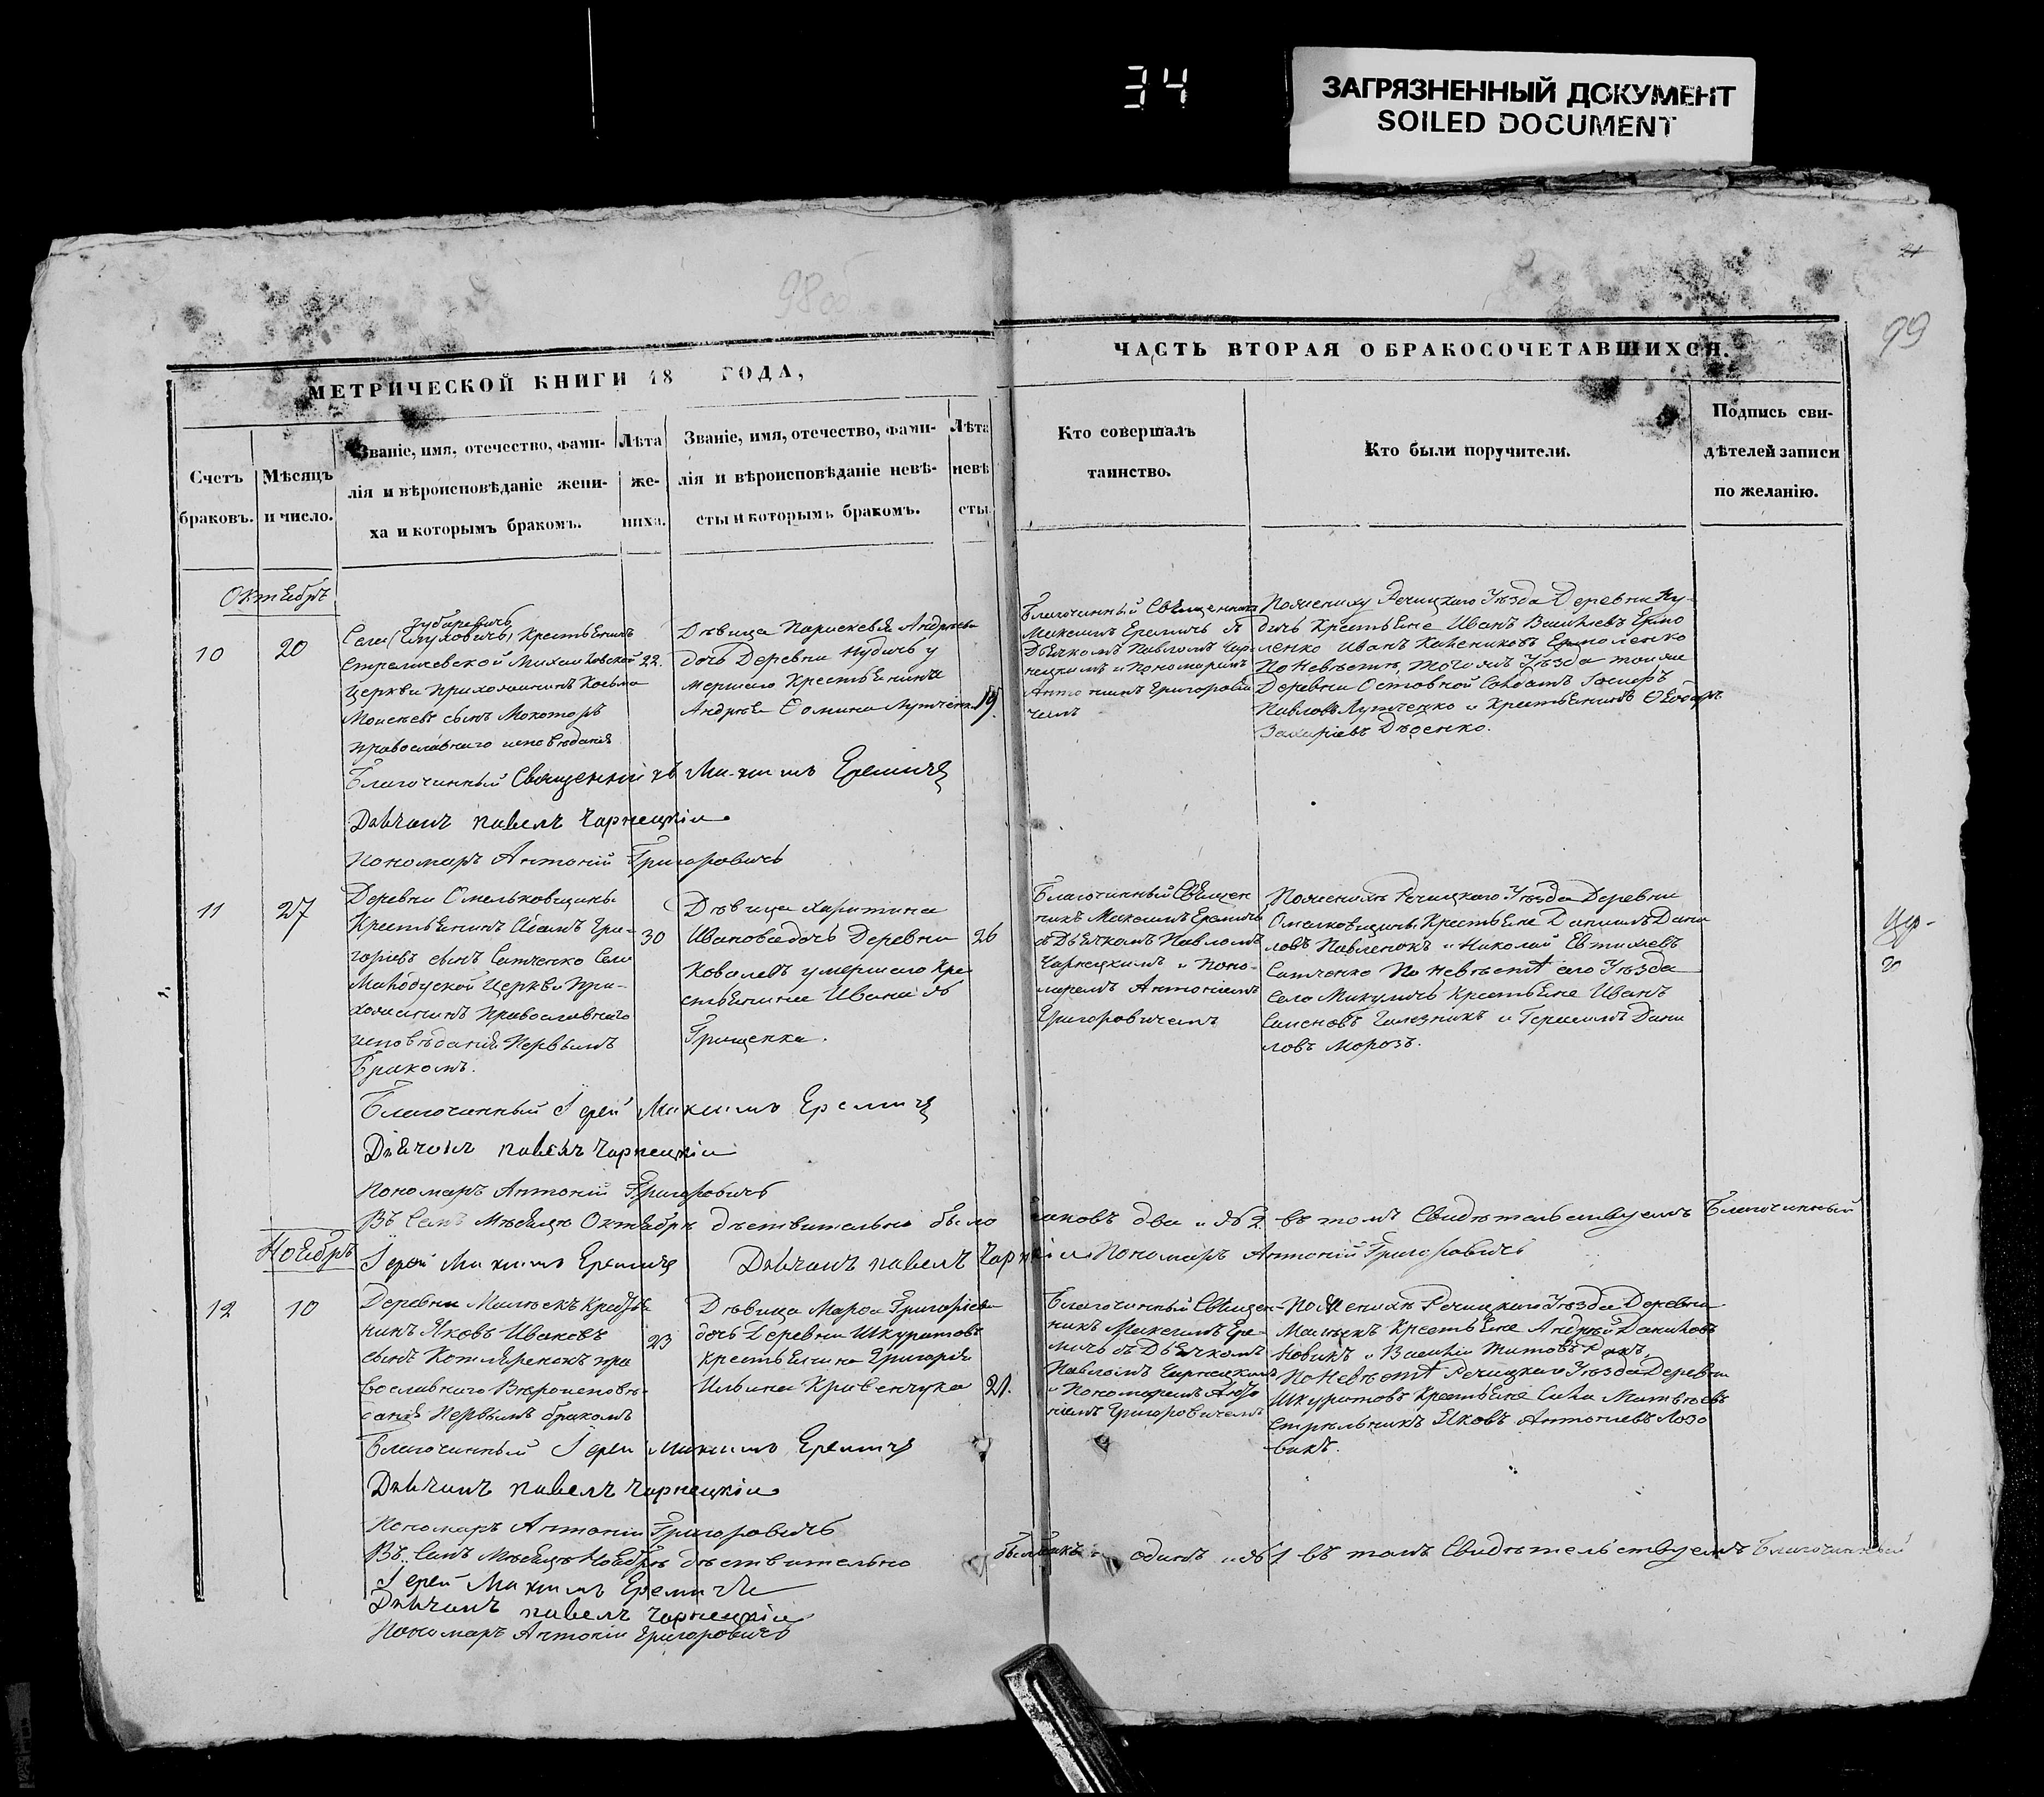 34
ЗАГРЯЗНЕННЫЙ ДОКУМЕНТ
SOILED DOCUMENT
98об
21
99
МЕТРИЧЕСКОЙ КНИГИ 18 ГОДА,
Счетъ
браковъ.
Мѣсяцъ
и число.
Званіе, имя, отечество, фами-
лія и вѣроисповѣданіе жени-
ха и которымъ бракомъ.
Лѣта
же-
ниха.
Званіе, имя, отечество, фами-
лія и вѣроисповѣданіе невѣ-
сты и которымъ бракомъ.
Лѣта
невѣ
сты
ЧАСТЬ ВТОРАЯ О БРАКОСОЧЕТАВШИХСЯ.
Кто совершалъ
таинство.
Кто были поручители.
Подпись сви-
дѣтелей записи
по желанію.
Октябрь
10
20
Села Крестьянинъ
Михайловской
Церкви прихожанинъ Косьма
Моисеевъ сынъ
православнаго исповѣданія
22.
Дѣвица Параскевія Андреева
дочь Деревни Нудичь у
мершаго Крестьянина
Андрея Ѳомина
19.
Благочинный Священникъ
Максимъ Еремичь съ
Дьячкомъ Павломъ Чар
нецкимъ и Пономаремъ
Григорови
чемъ
По жениху Речицкаго Уѣзда Деревни Ну-
дичь Крестьяне Иванъ Васильевъ Ермо
ленко Иванъ Ермоленко
По Невѣстѣ, тогожъ Уѣзда тойже
Деревни
Павловъ и Крестьянинъ Ѳеодоръ
Захаріевъ Дѣденко.
Благочинный Священникъ Максимъ Еремичъ
Дьячокъ Павелъ Чарнецкій
Пономарь Антоній Григоровичъ
11
27
Деревни Омельковщины
Крестьянинъ Адамъ Гри-
горіевъ сынъ Сатченко Села
Церкви при-
хожанинъ Православнаго
исповѣданія Первымъ
Бракомъ.
30
Дѣвица Харитина
Иванова дочь Деревни
Ковалевъ умершаго Кре
стьянина Ивана
Грищенка.
26
Благочинный Священ
никъ Максимъ Еремичь
съ Дьячкомъ Павломъ
Чарнецкимъ и Поно-
маремъ Антоніемъ
Григоровичемъ
По женихѣ Речицкаго Уѣзда Деревни
Омельковщины Крестьяне Даніилъ Дани
ловъ Павленокъ и Николай Евтихіевъ
Сатченко По невѣстѣ сего Уѣзда
Села Микуличь Крестьяне Иванъ
Семеновъ и Герасимъ Дани
ловъ Морозъ.
Благочинный Іерей Максимъ Еремичъ
Дьячокъ Павелъ Чарнецкій
Пономарь Антоній Григоровичъ
Въ Семъ Мѣсяцѣ Октябрѣ дѣствительно было браковъ два 2 въ томъ Свидѣтельствуемъ Благочинный
Іерей Максимъ Еремичъ Дьячокъ Павелъ Пономарь Антоній Григоровичъ
Ноябрь
12
10
Деревни Малѣекъ Крестья
нинъ Яковъ Ивановъ
сынъ Котляренокъ пра
вославнаго Вѣроисповѣ-
данія Первымъ бракомъ
23
Дѣвица Марѳа Григоріева
дочь Деревни Шкуратовъ
крестьянина Григорія
Ильина Кривенчука
21.
Благочинный Священ-
никъ Максимъ Ере-
мичь съ Дьячкомъ
Павломъ Чарнецкимъ
и Пономаремъ Анто
ніемъ Григоровичемъ
По Женихѣ Речицкаго Уѣзда Деревни
Малѣекъ Крестьяне Андрей Даниловъ
Новикъ и Василій Титовъ
По Невѣстѣ Речицкаго Уѣзда Деревни
Шкуратовъ Крестьяне Сила Матвѣевъ
Стрѣльникъ Яковъ Антоніевъ Лозо
викъ.
Благочинный Іерей Максимъ Еремичъ
Дьячокъ Павелъ Чарнецкій
Пономарь Антоній Григоровичъ
Въ Семъ Мѣсяцѣ Ноябрѣ дѣствительно одинъ 1 въ томъ Свидѣтельствуемъ Благочинный
Іерей Максимъ Еремичъ
Дьячокъ Павелъ Чарнецкій
Пономарь Антоній Григоровичъ